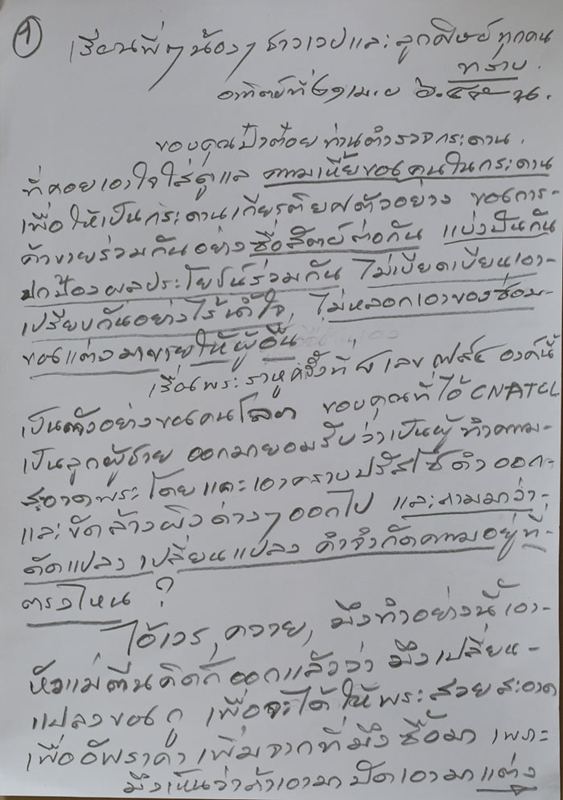 1
เรียนพี่ๆน้องๆชาวเวปและลูกศิษย์ทุกคน
ทราบ.
อาทิตย์ที่ ๒๑ เม.ย ๖.๔๕ น.
ขอบคุณป๋าต๋อยท่านตำรวจกระดาน.
ที่คอยเอาใจใส่ดูแล ความเหี้ยของคนในกระดาน
เพื่อให้เป็นกระดานเกียรติยศตัวอย่าง ของการ-
ค้าขายร่วมกันอย่างซื่อสัตย์ต่อกัน แบ่งปันกัน
ปกป้องผลประโยชน์ร่วมกัน ไม่เบียดเบียนเอา-
เปรียบกันอย่างไร้น้ำใจ, ไม่หลอกเอาของซ่อม-
ของแต่งมาขายให้ผู้อื่น
เรื่องพระราหูครั้งที่ เลข องค์นี้
เป็นตัวอย่างของคนโลภ ขอบคุณที่ไอ้ CNATCL
เป็นลูกผู้ชาย ออกมายอมรับว่าเป็นผู้ทำความ-
สะอาดพระ โดยแคะเอาคราบปรัสไซ้ดำออก-
และขัดล้างผิวด่างๆออกไป และถามมาว่า-
ดัดแปลง เปลี่ยนแปลง คำจำกัดความอยู่ที่-
ตรงไหน ?
ไอ้เวร, ควาย, มึงทำอย่างนี้เอา-
หัวแม่ตีนคิดก็ออกแล้วว่า มึงเปลี่ยน-
แปลงของกู เพื่อจะได้ให้พระสวยสะอาด
เพื่ออัพราคาเพิ่มจากที่มึงซื้อมา เพราะ
มึงเห็นว่าถ้าเอามาปัดเอามาแต่ง